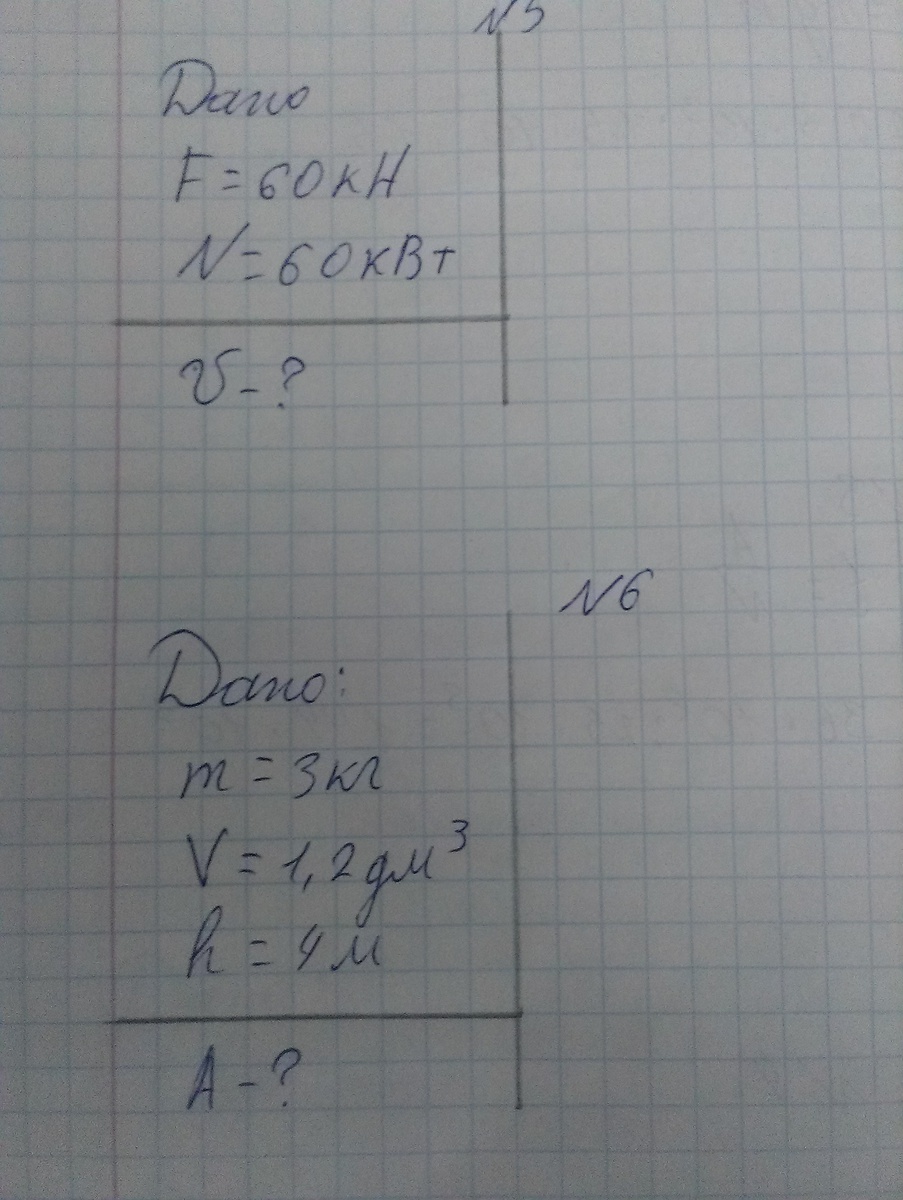 N5
Дано
F = 60 кН
N = 60 кВт
v - ?
N6
Дано:
m = 3 кг
V = 1,2 дм³
h = 4 м
A - ?